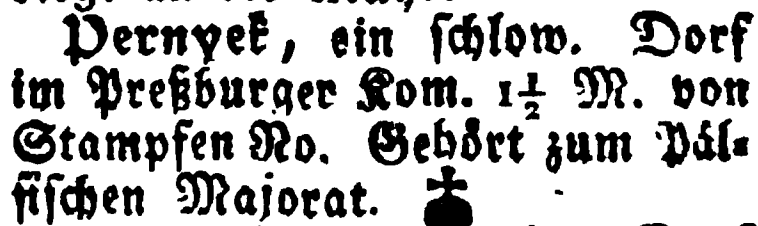 Pernyek, ein schlow. Dorf
im Preßburger Kom. 1½ M. von
Stampfen No. Gehört zum Pál-
fischen Majorat.